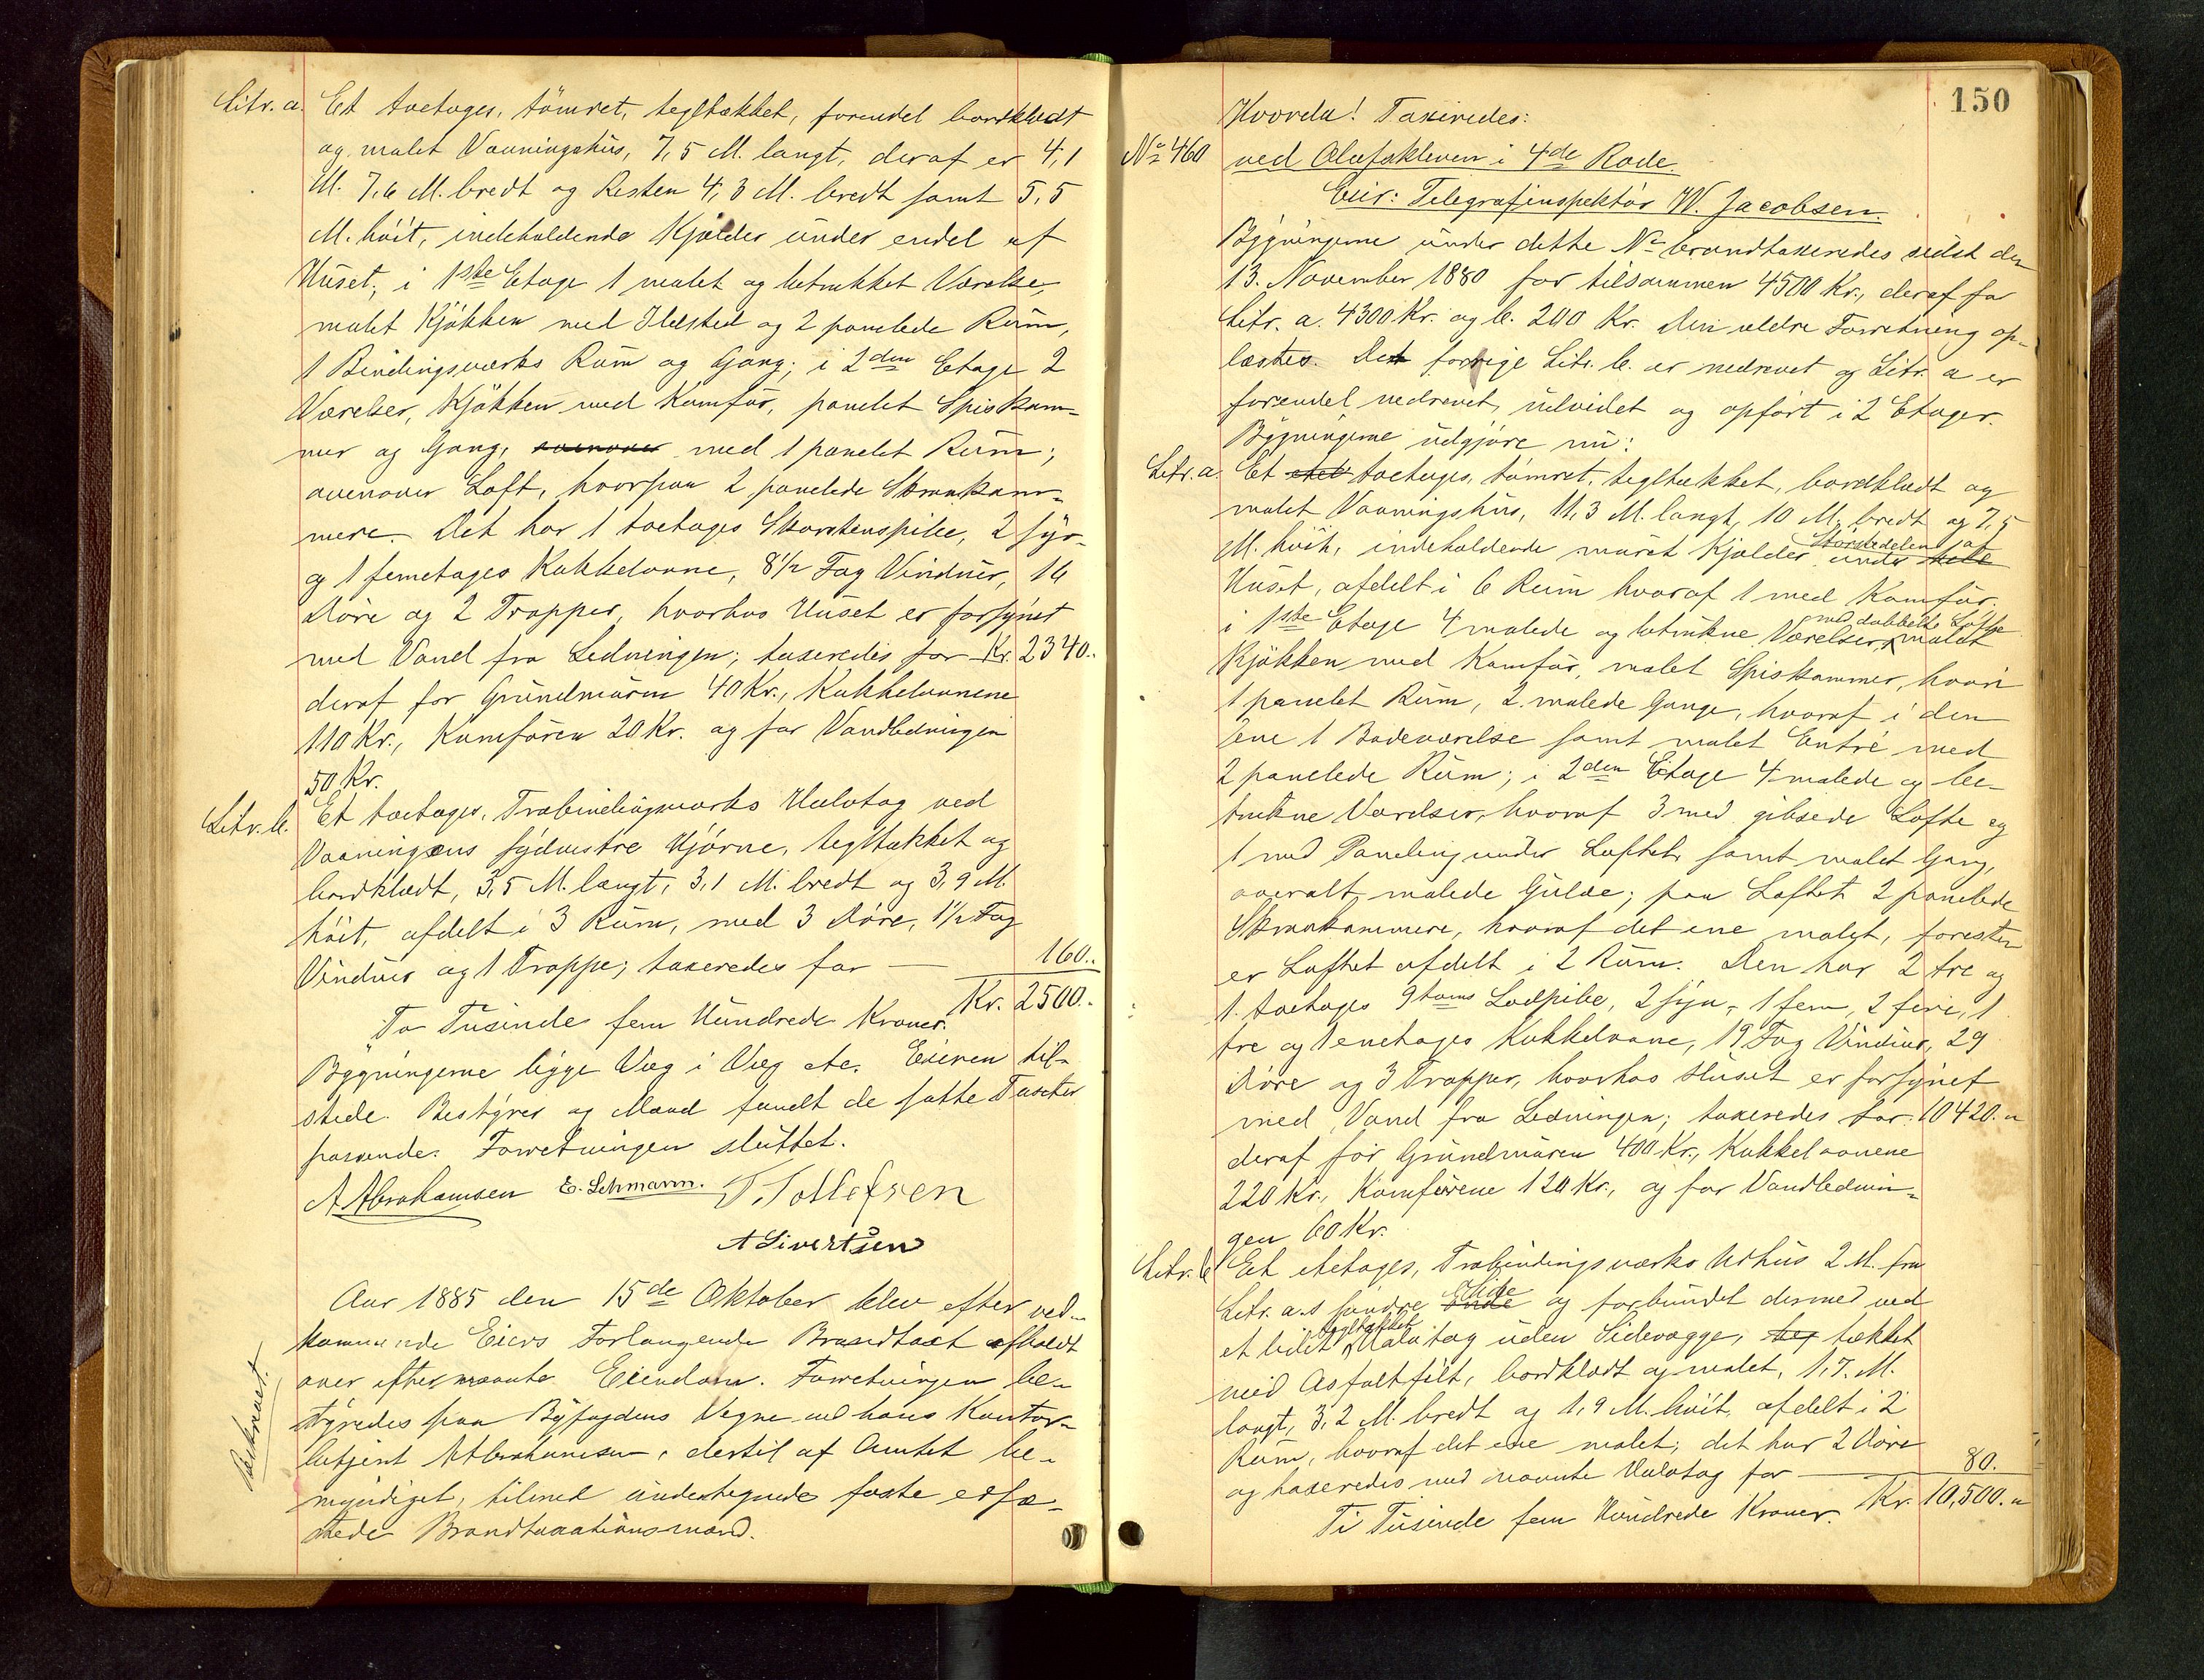 Litr. a. Et toetages, tömret, tegltækket, forendel bordklædt
og malet Vaaningshus, 7,5 M. langt, deraf er 4,1
M. 7,6 M. bredt og Resten 4,3 M. bredt samt 5,5
M. höit, indeholdende Kjælder under endel af
Huset; i 1ste Etage 1 malet og betrukket Værelse,
malet Kjökken med Ildsted og 2 panelede Rum,
1 Bindingsværks Rum og Gang; i 2den Etage 2
Værelser, Kjökken med Komfur, panelet Spiskam-
mer og Gang, ovenover med 1 panelet Rum;
ovenover Loft, hvorpaa 2 panelede Skrankam-
mere. Det har 1 toetages Skorstenspibe, 2 fyr-
og 1 femetages Kakkelovne, 8 1/2 Fag Vinduer, 16
Döre og 2 Trapper, hvorhos Huset er forsynet
med Vand fra Ledningen; taxeredes for Kr. 2340..
deraf for Grundmuren 40 Kr., Kakkelovnene
110 Kr., Komfuren 20 Kr. og for Vandledningen
50 Kr.
Litr. b. Et toetages, Træbindingsværks Halvtag ved
Vaaningens sydvestre Hjörne, tegltækket og
bordklædt, 3,5 M. langt, 3,1 M. bredt og 3,9 M.
höit, afdelt i 3 Rum, med 3 Döre, 1 1/2 Fag
Vinduer og 1 Trappe; taxeredes for 160..
Kr. 2500..
To Tusinde fem Hundrede Kroner.
Bygningerne ligge Væg i Væg etc. Eieren til-
stede. Bestyrer og Mænd fandt de satte Taxter
passende. Forretningen sluttet.
A Abrahamsen E. Lehmann. T. Tollefsen
A Sivertsen
Aar 1885 den 15de Oktober blev efter ved-
kommende Eiers Forlangende Brandtaxt afholdt
over efternævnte Eiendom. Forretningen be-
styredes paa Byfogdens Vegne ved hans Kontor-
betjent A Abrahamsen, dertil af Amtet be-
myndiget, tilmed undertegnede faste edfæ-
stede Brandtaxationsmænd.
Beskrevet.
150
Hvorda! Taxeredes:
No 460 ved Olafskleven i 4de Rode.
Eier: Telegrafinspektör W. Jacobsen.
Bygningerne under dette No brandtaxeredes sidst den
13. November 1880 for tilsammen 4500 Kr., deraf for
Litr. a. 4300 Kr. og b. 200 Kr. Den ældre Forretning op-
læstes. Det forrige Litr. b. er nedrevet og Litr. a er
forendel nedrevet, udvidet og opfört i 2 Etager.
Bygningerne udgjöre nu:
Litr. a. Et etet toetages, tömret, tegltækket, bordklædt og
malet Vaaningshus, 11,3 M. langt, 10 M. bredt og 7,5
M. höit, indeholdende muret Kjælder under hele Störstedelen af
Huset, afdelt i 6 Rum hvoraf 1 med Komfur,
i 1ste Etage 4 malede og betrukne Værelser, med dobbelte Lofte malet
Kjökken med Komfur, malet Spiskammer, hvori
1 panelet Rum, 2 malede Gange, hvoraf i den
ene 1 Badeværelse samt malet Entré med
2 panelede Rum; i 2den Etage 4 malede og be-
trukne Værelser, hvoraf 3 med gibsede Lofte og
1 med Paneling under Loftet, samt malet Gang,
overalt malede Gulve; paa Loftet 2 panelede
Skrankammere, hvoraf det ene malet, foresten
er Loftet afdelt i 2 Rum. Den har 2 tre og
1 toetages 9toms Lodpibe, 2 syv-, 1 fem, 2 fire, 1
tre og 1 enetages Kakkelovne, 19 Fag Vinduer, 29
Döre og 3 Trapper, hvorhos Huset er forsynet
med Vand fra Ledningen; taxeredes for: 10420. "
deraf for Grundmuren 400 Kr., Kakkelovnene
220 Kr., Komfurene 120 Kr., og for Vandlednin-
gen 60 Kr.
Litr. b Et etetages, Træbindingsværks Udhus 2 M. fra
Litr. a.s söndre Ende Side og forbundet dermed ved
et lidet tegltækket Halvtag uden Sidevægge, teg tækket
med Asfaltfilt, bordklædt og malet, 1,7 M.
langt, 3,2 M. bredt og 1,9 M. höit, afdelt i 2
Rum, hvoraf det ene malet; det har 2 Döre
og taxeredes med nævnte Halvtag for 80.
Kr. 10,500. "
Ti Tusinde fem Hundrede Kroner.